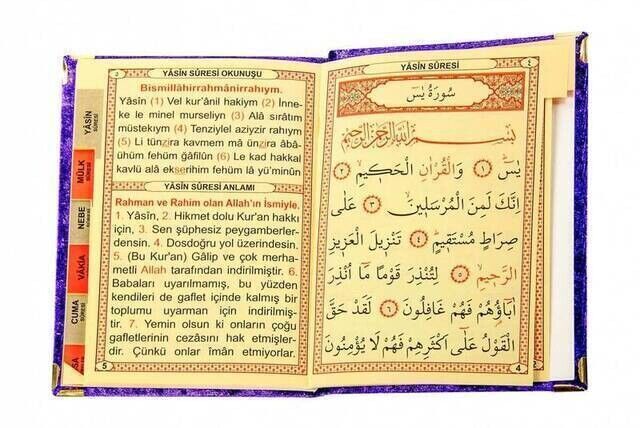 YÂSİN SÛRESİ OKUNUŞU
Bismillâhirrahmânirrahıym.
Yâsîn (1) Vel kur'ânil hakiym (2) İnne-
ke le minel murseliyn (3) Alâ sırâtım
müstekıym (4) Tenziylel aziyzir rahıym
(5) Li tünzira kavmem mâ ünzira âbâ-
ühüm fehüm ğâfilûn (6) Le kad hakkal
kavlü alâ ekserihim fehüm lâ yü'minûn
YÂSİN SÛRESİ ANLAMI
Rahman ve Rahim olan Allah'ın İsmiyle,
1. Yâsîn, 2. Hikmet dolu Kur'an hakkı
için, 3. Sen şüphesiz peygamberler-
densin. 4. Dosdoğru yol üzerindesin.
5. (Bu Kur'an) Gâlip ve çok merha-
metli Allah tarafından indirilmiştir. 6.
Babaları uyarılmamış, bu yüzden
kendileri de gaflet içinde kalmış bir
toplumu uyarman için indirilmiş-
tir. 7. Yemin olsun ki onların çoğu
gafletlerinin cezasını hak etmişler-
dir. Çünkü onlar îman etmiyorlar.
5
YÂSİN
SÛRESİ
MÜLK
SÛRESİ
NEBE
SÛRESİ
VÂKIA
SÛRESİ
CUMA
SÛRESİ
YÂSİN SÛRESİ
٤
سُورَةُ يٰسٓ
بِسْمِ اللّٰهِ الرَّحْمٰنِ الرَّحِيمِ
يٰسٓ ﴿١﴾ وَالْقُرْاٰنِ الْحَكِيمِ ﴿٢﴾
اِنَّكَ لَمِنَ الْمُرْسَلِينَ ﴿٣﴾ عَلٰى
صِرَاطٍ مُسْتَقِيمٍ ﴿٤﴾ تَنْزِيلَ الْعَزِيزِ
الرَّحِيمِ ﴿٥﴾ لِتُنْذِرَ قَوْمًا مَٓا اُنْذِرَ
اٰبَٓاؤُهُمْ فَهُمْ غَافِلُونَ ﴿٦﴾ لَقَدْ حَقَّ
الْقَوْلُ عَلٰٓى اَكْثَرِهِمْ فَهُمْ لَا يُؤْمِنُونَ
4